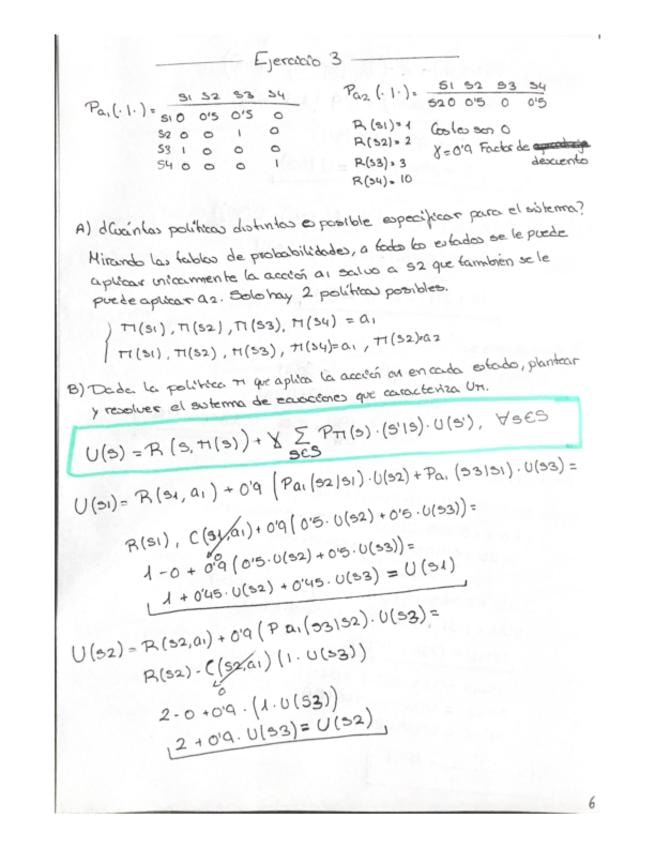 Ejercicio 3
Pa1(·|·) =
S1 S2 S3 S4
S1 0 0'5 0'5 0
S2 0 0 1 0
S3 1 0 0 0
S4 0 0 0 1
Pa2(·|·) =
S1 S2 S3 S4
S2 0 0'5 0 0'5
R(S1) = 1
R(S2) = 2
R(S3) = 3
R(S4) = 10
Costes son 0
γ = 0'9 Factor de
descuento
A) ¿Cuántas políticas distintas es posible especificar para el sistema?
Mirando las tablas de probabilidades, a todos los estados se le puede
aplicar unicamente la acción a1 salvo a S2 que también se le
puede aplicar a2. Solo hay 2 políticas posibles.
π(S1), π(S2), π(S3), π(S4) = a1
π(S1), π(S2), π(S3), π(S4) = a1, π(S2) = a2
B) Dada la política π que aplica la acción a1 en cada estado, plantear
y resolver el sistema de ecuaciones que caracteriza Uπ.
U(S) = R(S, π(S)) + γ Σ Pπ(S)·(S'|S)·U(S'), ∀S∈S
S∈S
U(S1) = R(S1, a1) + 0'9 (Pa1(S2|S1)·U(S2) + Pa1(S3|S1)·U(S3) =
R(S1), C(S1,a1) + 0'9(0'5·U(S2) + 0'5·U(S3)) =
0
1 - 0 + 0'9(0'5·U(S2) + 0'5·U(S3)) =
1 + 0'45·U(S2) + 0'45·U(S3) = U(S1)
U(S2) = R(S2,a1) + 0'9(Pa1(S3|S2)·U(S3) =
R(S2) - C(S2,a1)(1·U(S3))
0
2 - 0 + 0'9·(1·U(S3))
2 + 0'9·U(S3) = U(S2)
6